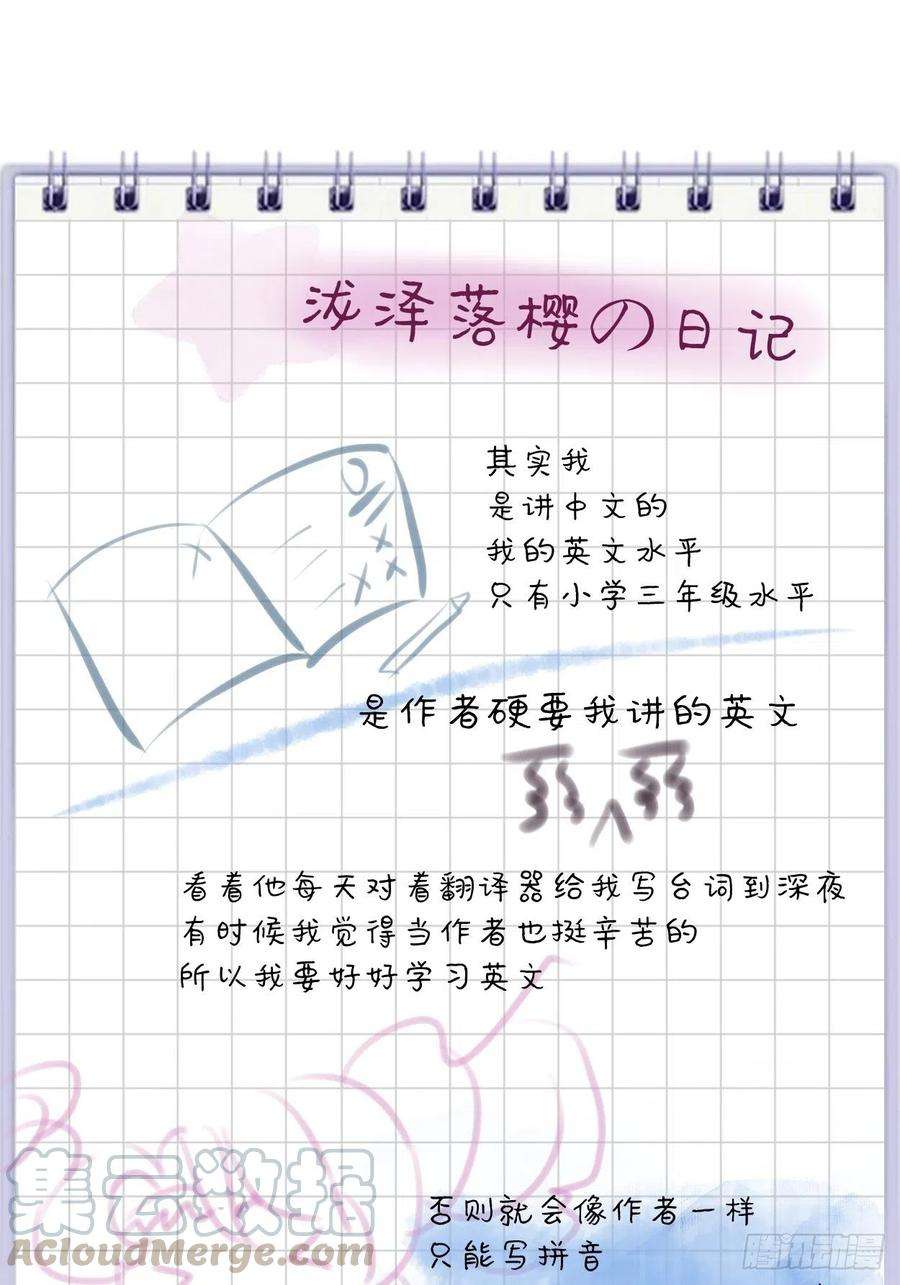 泷泽落樱の日记
其实我
是讲中文的
我的英文水平
只有小学三年级水平
是作者硬要我讲的英文
看着他每天对着翻译器给我写台词到深夜
有时候我觉得当作者也挺辛苦的
所以我要好好学习英文
否则就会像作者一样
只能写拼音
集云数据
ACloudMerge.com
腾讯动漫